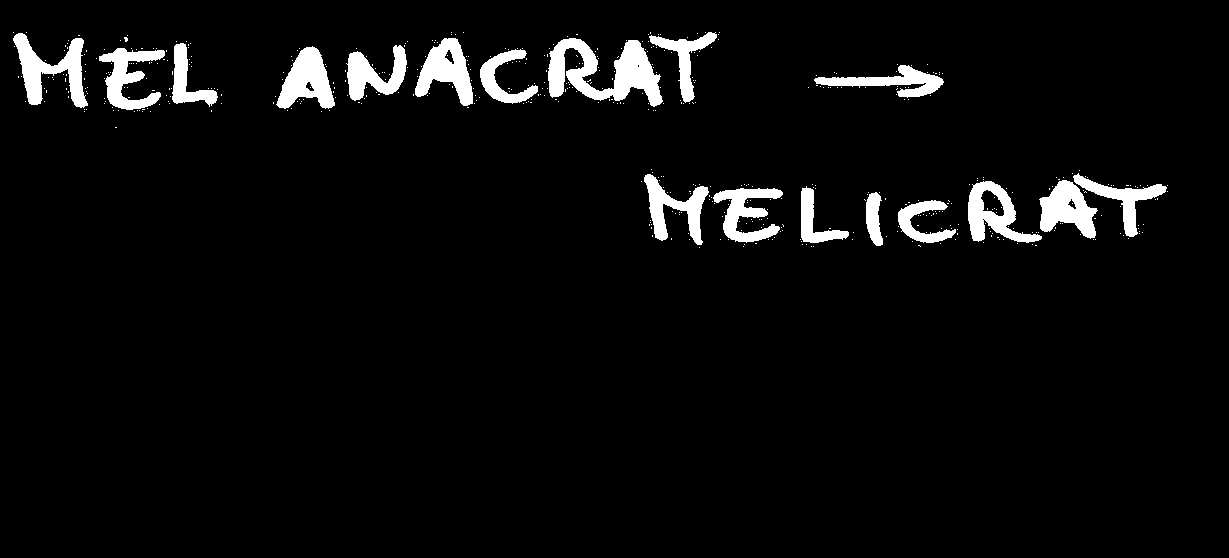 MEL ANACRAT →
MELICRAT